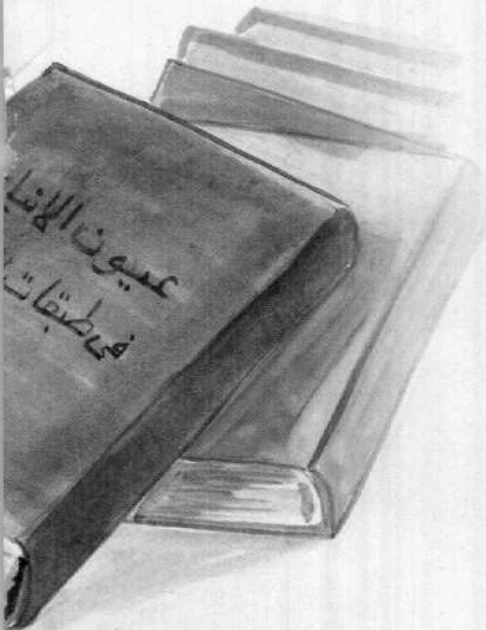 عيون الانبا
فى طبقات